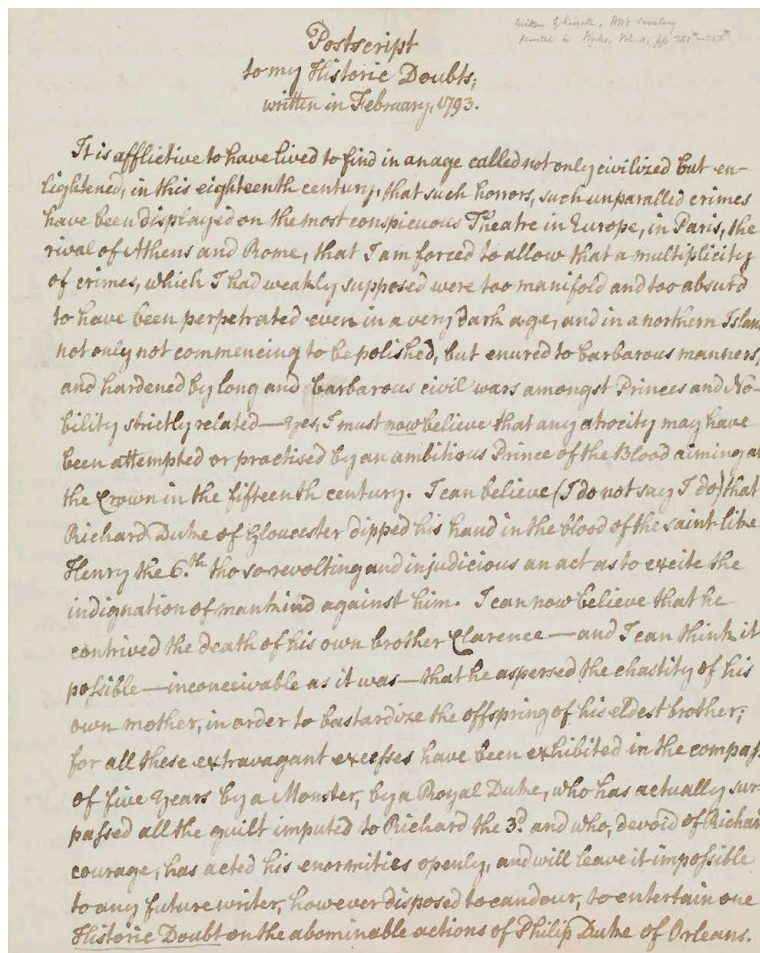 written by Kirgate, HW's secretary
printed in Works, Vol. ii, pp. 251*-252*
Postscript
to my Historic Doubts,
written in February, 1793.
It is afflictive to have lived to find in an age called not only civilized but en-
lightened, in this eighteenth century, that such horrors, such unparalled crimes
have been displayed on the most conspicuous Theatre in Europe, in Paris, the
rival of Athens and Rome, that I am forced to allow that a multiplicity
of crimes, which I had weakly supposed were too manifold and too absurd
to have been perpetrated even in a very dark age, and in a northern Islan
not only not commencing to be polished, but enured to barbarous manners,
and hardened by long and barbarous civil wars amongst Princes and No-
bility strictly related—Yes, I must now believe that any atrocity may have
been attempted or practised by an ambitious Prince of the Blood aiming at
the Crown in the fifteenth century. I can believe (I do not say I do) that
Richard Duke of Gloucester dipped his hand in the blood of the saint-like
Henry the 6.th tho so revolting and injudicious an act as to excite the
indignation of mankind against him. I can now believe that he
contrived the death of his own brother Clarence—and I can think it
possible—inconceivable as it was—that he aspersed the chastity of his
own mother, in order to bastardize the offspring of his eldest brother;
for all these extravagant excesses have been exhibited in the compass
of five years by a Monster, by a Royal Duke, who has actually sur-
passed all the guilt imputed to Richard the 3d. and who, devoid of Richar
courage, has acted his enormities openly, and will leave it impossible
to any future writer, however disposed to candour, to entertain one
Historic Doubt on the abominable actions of Philip Duke of Orleans.